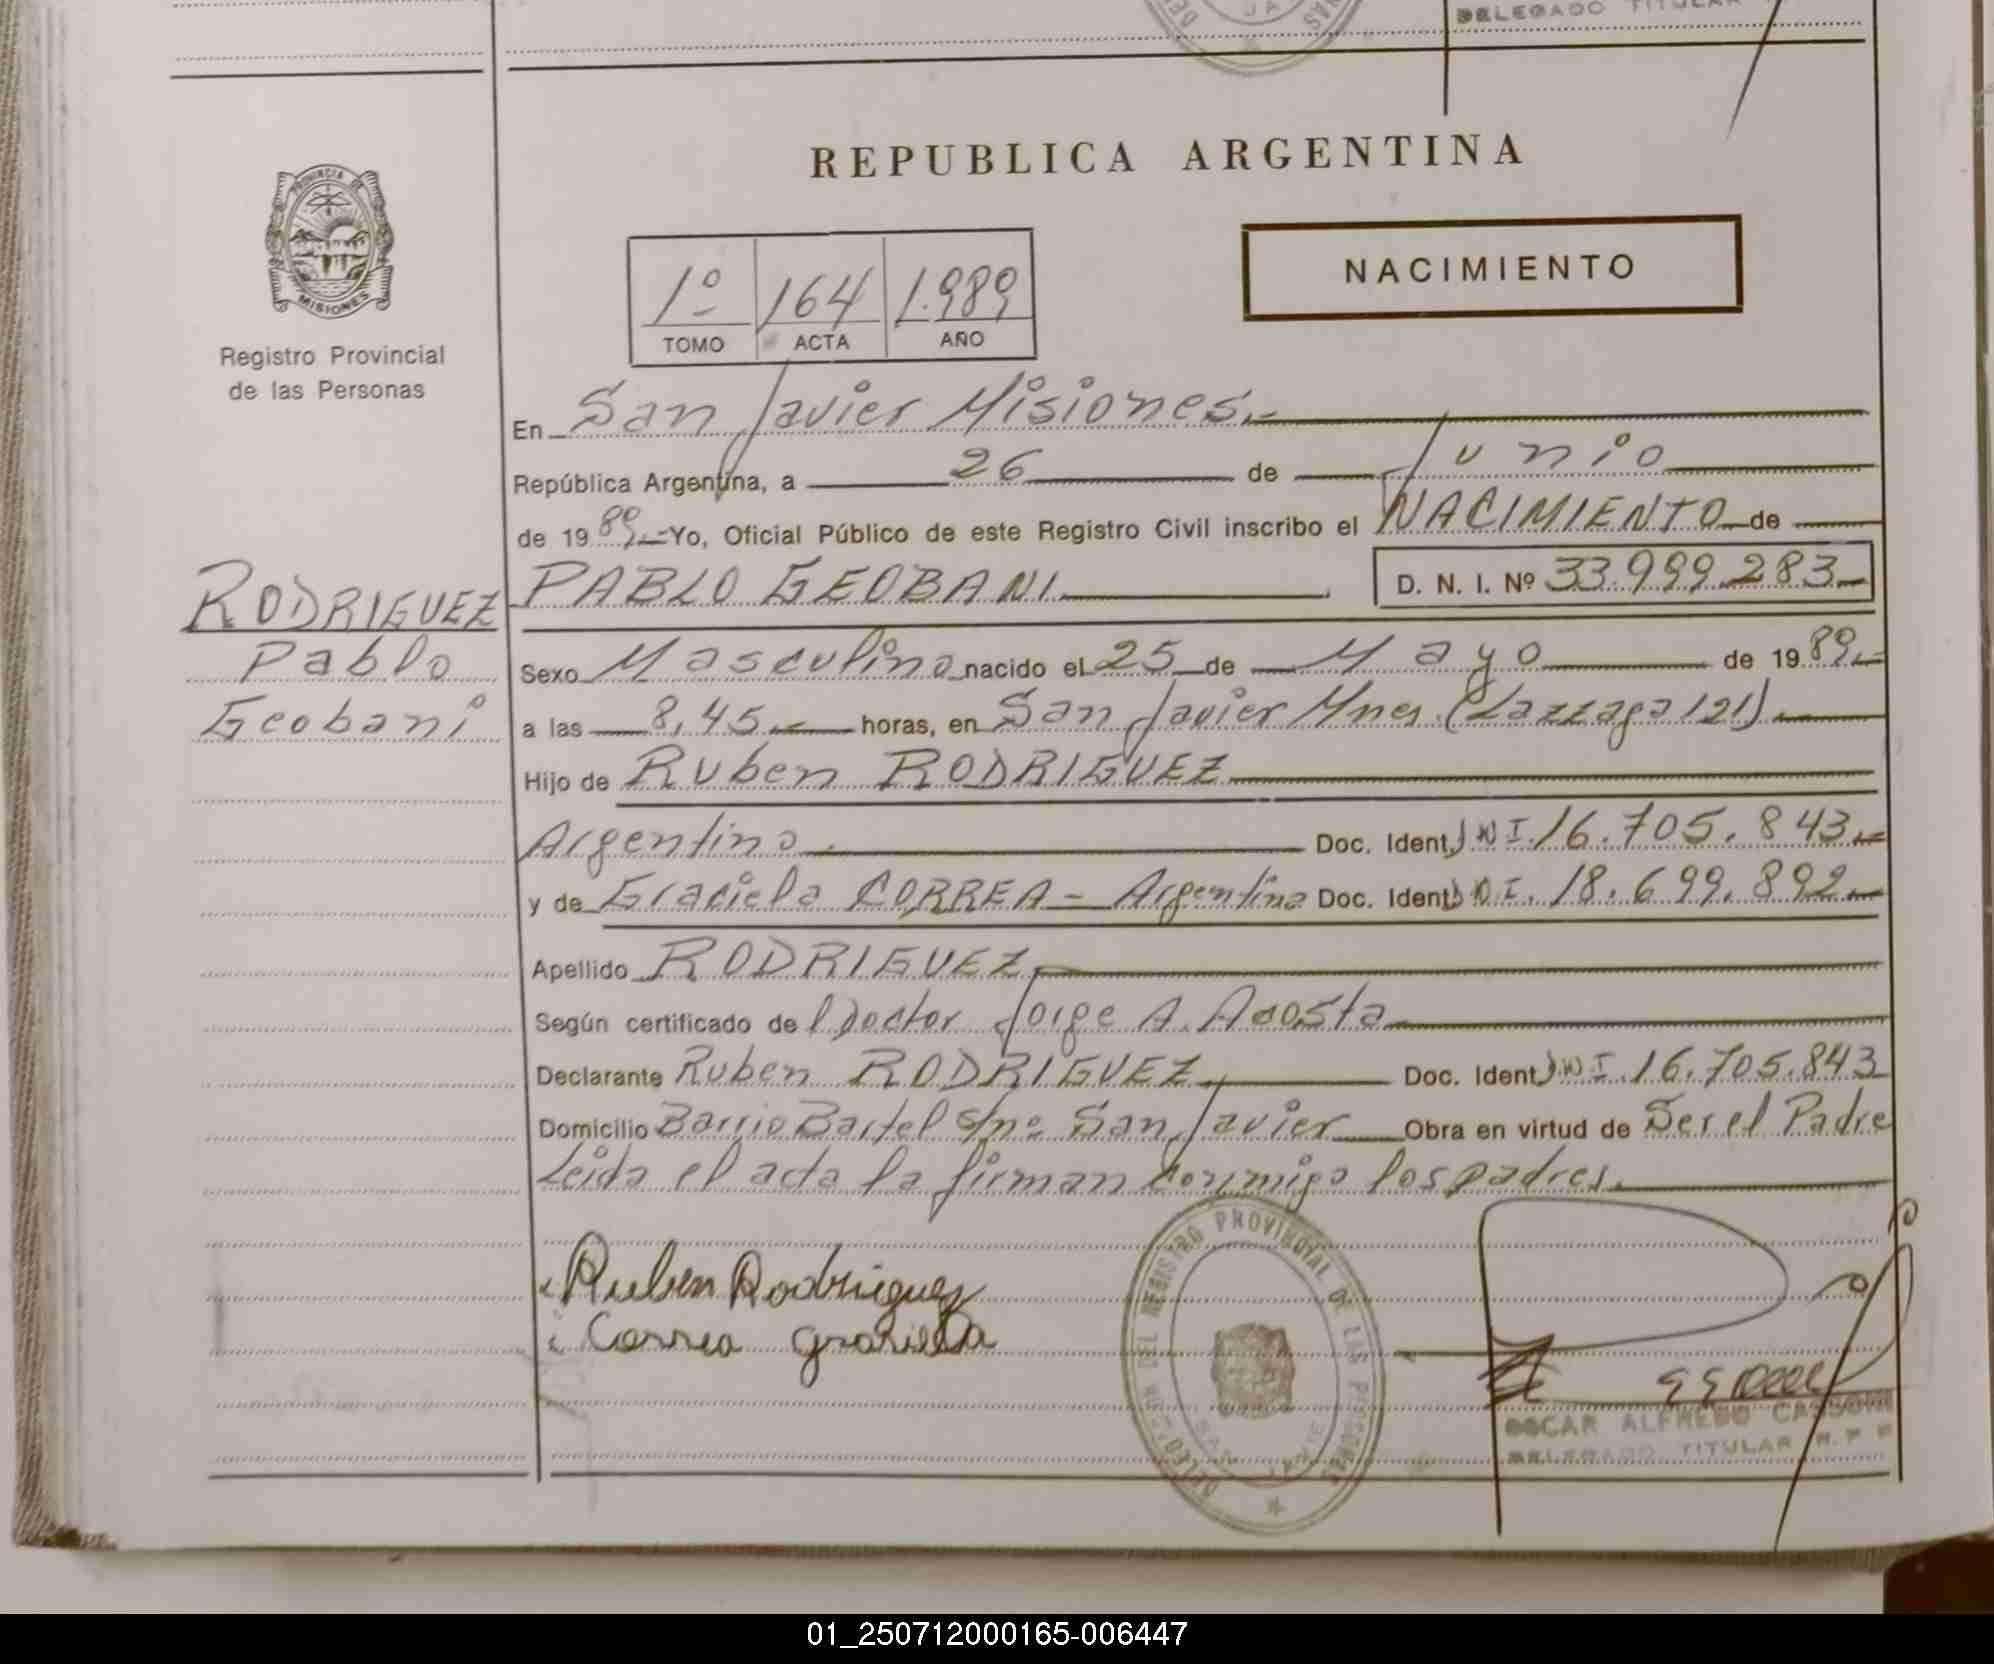 DELEGADO TITULAR
REPUBLICA ARGENTINA
PROVINCIA DE
MISIONES
NACIMIENTO
1º 164 1.989
TOMO ACTA AÑO
Registro Provincial
de las Personas
En San Javier Misiones.-
República Argentina, a 26 de Junio
de 1989.- Yo, Oficial Público de este Registro Civil inscribo el NACIMIENTO de
RODRIGUEZ
Pablo
Geobani
PABLO GEOBANI D. N. I. Nº 33.999.283
Sexo Masculino nacido el 25 de Mayo de 1989.-
a las 8,45.- horas, en San Javier Mnes. (Lazzaga 121).
Hijo de Ruben RODRIGUEZ
Argentino. Doc. Ident. DNI. 16.705.843.-
y de Graciela CORREA - Argentina Doc. Ident. DNI. 18.699.892.-
Apellido RODRIGUEZ
Según certificado del Doctor Jorge A. Acosta
Declarante Ruben RODRIGUEZ Doc. Ident DNI. 16.705.843
Domicilio Barrio Bartel s/nº San Javier Obra en virtud de Ser el Padre
Leida el acta la firman conmigo los padres.
Ruben Rodriguez
Correa Graciela
DEL REGISTRO PROVINCIAL DE LAS PERSONAS
SAN JAVIER
OSCAR ALFREDO CASSONI
DELEGADO TITULAR R. P. P.
01_250712000165-006447